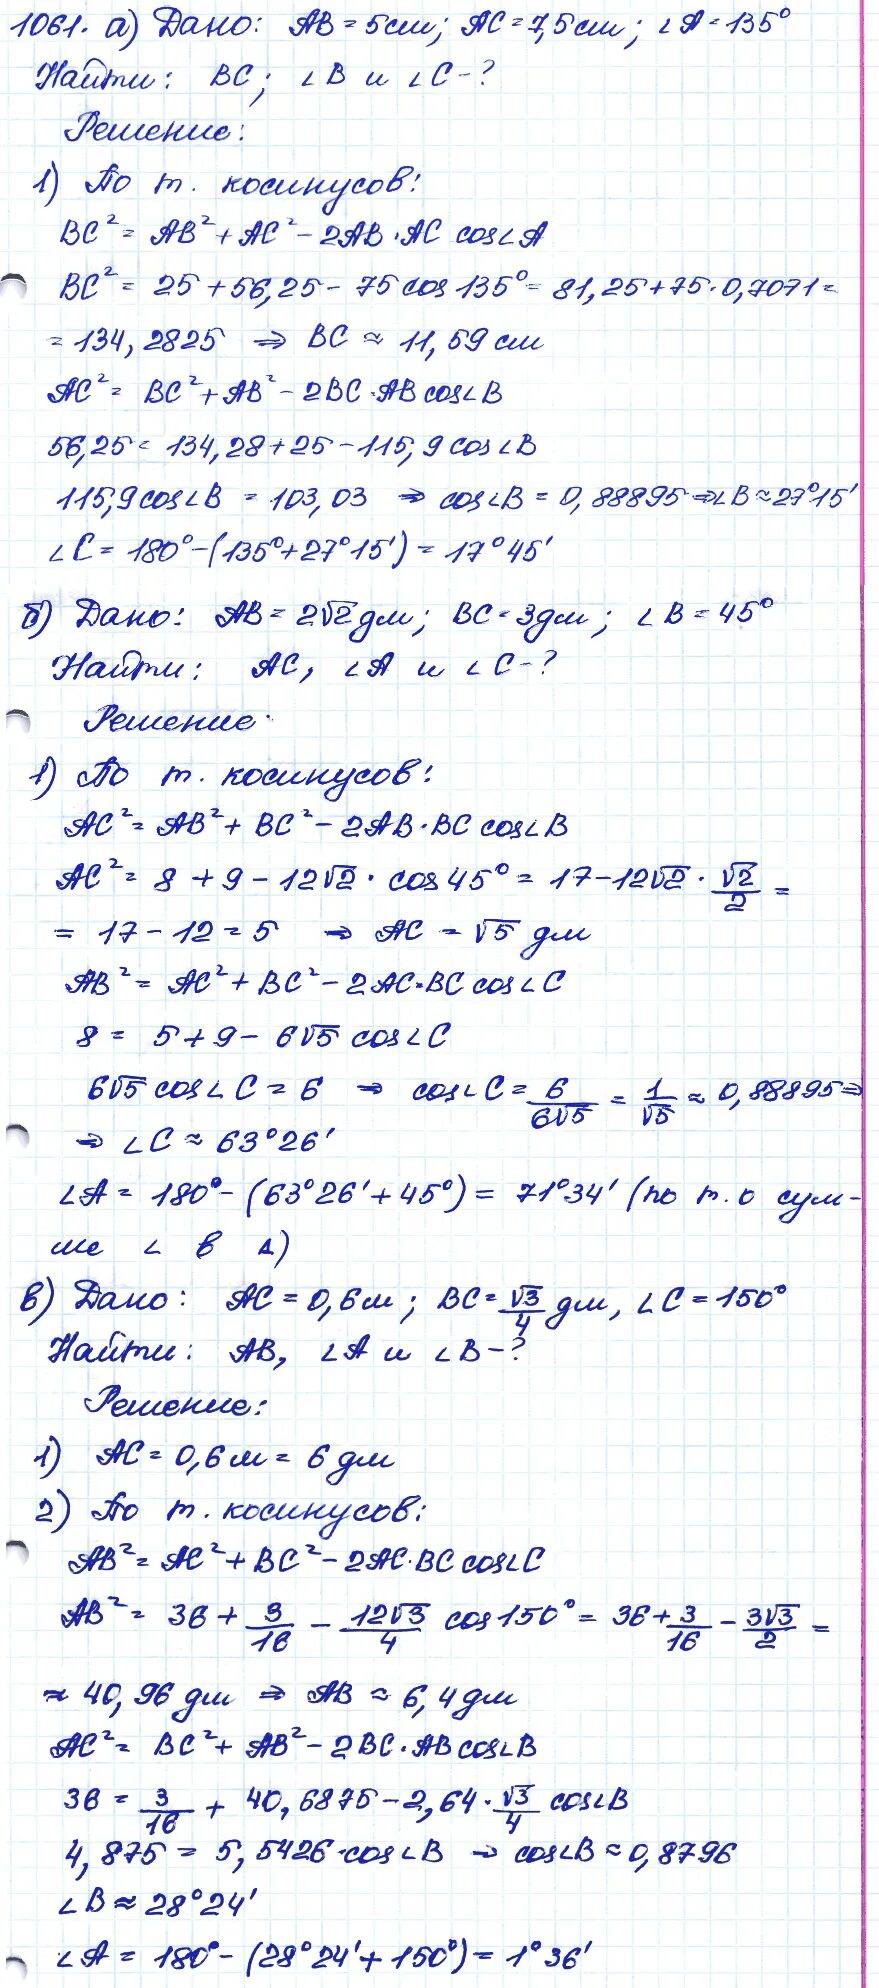 1061. а) Дано: AB = 5см; AC = 7,5см; ∠A = 135°
Найти: BC; ∠B и ∠C - ?
Решение:
1) По т. косинусов:
BC² = AB² + AC² - 2AB · AC cos∠A
BC² = 25 + 56,25 - 75 cos 135° = 81,25 + 75 · 0,7071 =
= 134,2825 ⇒ BC ≈ 11,59 см
AC² = BC² + AB² - 2BC · AB cos∠B
56,25 = 134,28 + 25 - 115,9 cos∠B
115,9 cos∠B = 103,03 ⇒ cos∠B = 0,88895 ⇒ ∠B ≈ 27°15'
∠C = 180° - (135° + 27°15') = 17°45'
б) Дано: AB = 2√2 дм; BC = 3дм; ∠B = 45°
Найти: AC, ∠A и ∠C - ?
Решение.
1) По т. косинусов:
AC² = AB² + BC² - 2AB · BC cos∠B
AC² = 8 + 9 - 12√2 · cos 45° = 17 - 12√2 · √2/2 =
= 17 - 12 = 5 ⇒ AC = √5 дм
AB² = AC² + BC² - 2AC · BC cos∠C
8 = 5 + 9 - 6√5 cos∠C
6√5 cos∠C = 6 ⇒ cos∠C = 6/6√5 = 1/√5 ≈ 0,88895 ⇒
⇒ ∠C ≈ 63°26'
∠A = 180° - (63°26' + 45°) = 71°34' (по т. о сум-
ме ∠ в Δ)
в) Дано: AC = 0,6м; BC = √3/4 дм, ∠C = 150°
Найти: AB, ∠A и ∠B - ?
Решение:
1) AC = 0,6м = 6 дм
2) По т. косинусов:
AB² = AC² + BC² - 2AC · BC cos∠C
AB² = 36 + 3/16 - 12√3/4 cos 150° = 36 + 3/16 - 3√3/2 =
≈ 40,96 дм ⇒ AB ≈ 6,4 дм
AC² = BC² + AB² - 2BC · AB cos∠B
36 = 3/16 + 40,6875 - 2,64 · √3/4 cos∠B
4,875 = 5,5426 · cos∠B ⇒ cos∠B ≈ 0,8796
∠B ≈ 28°24'
∠A = 180° - (28°24' + 150°) = 1°36'